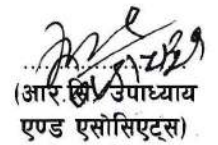 (आर सी उपाध्याय
एण्ड एसोसिएट्स)